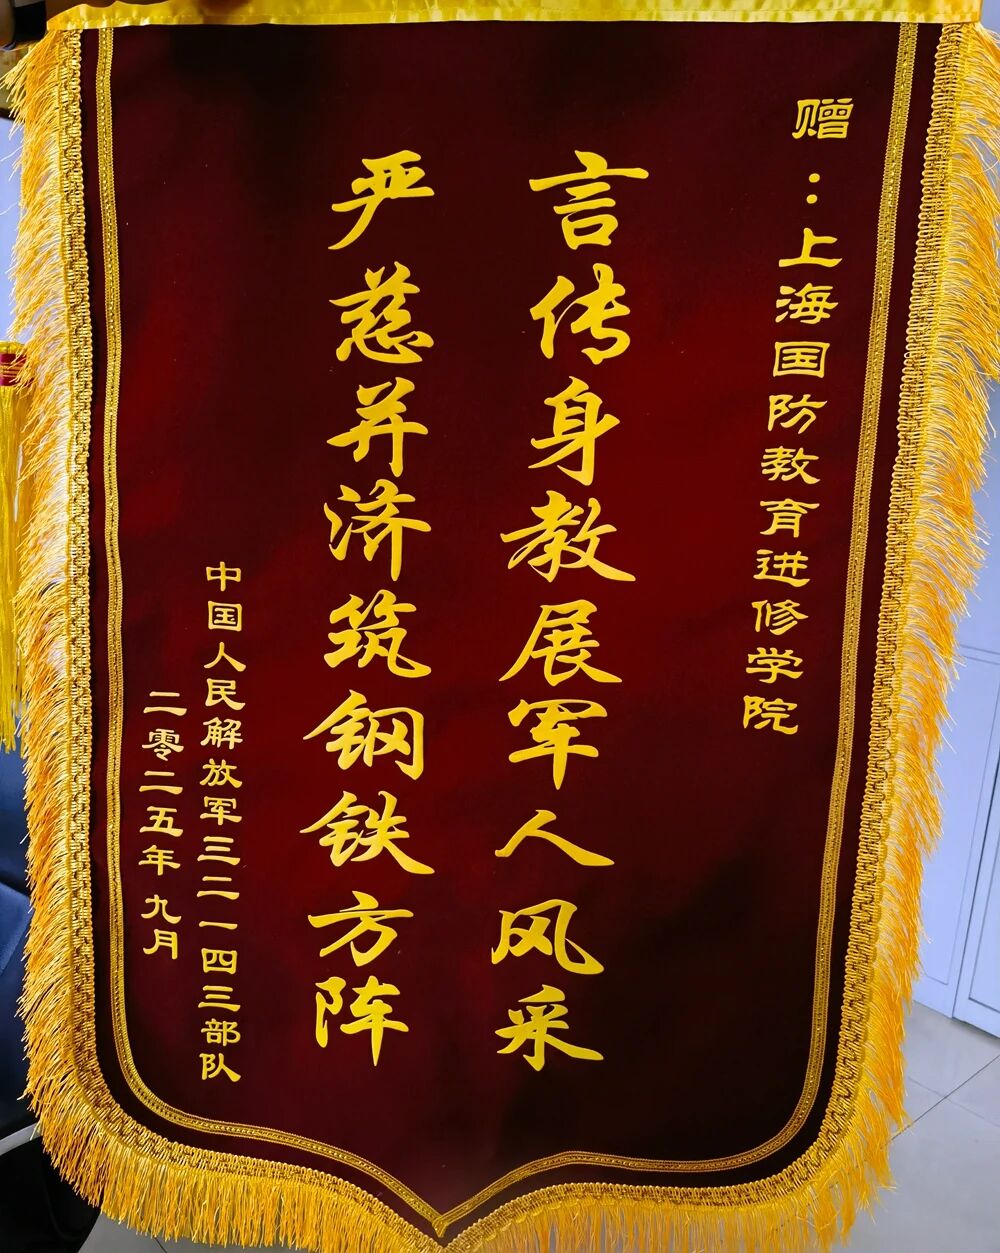 赠：上海国防教育进修学院
言传身教展军人风采
严慈并济筑钢铁方阵
中国人民解放军三二一四三部队
二零二五年九月